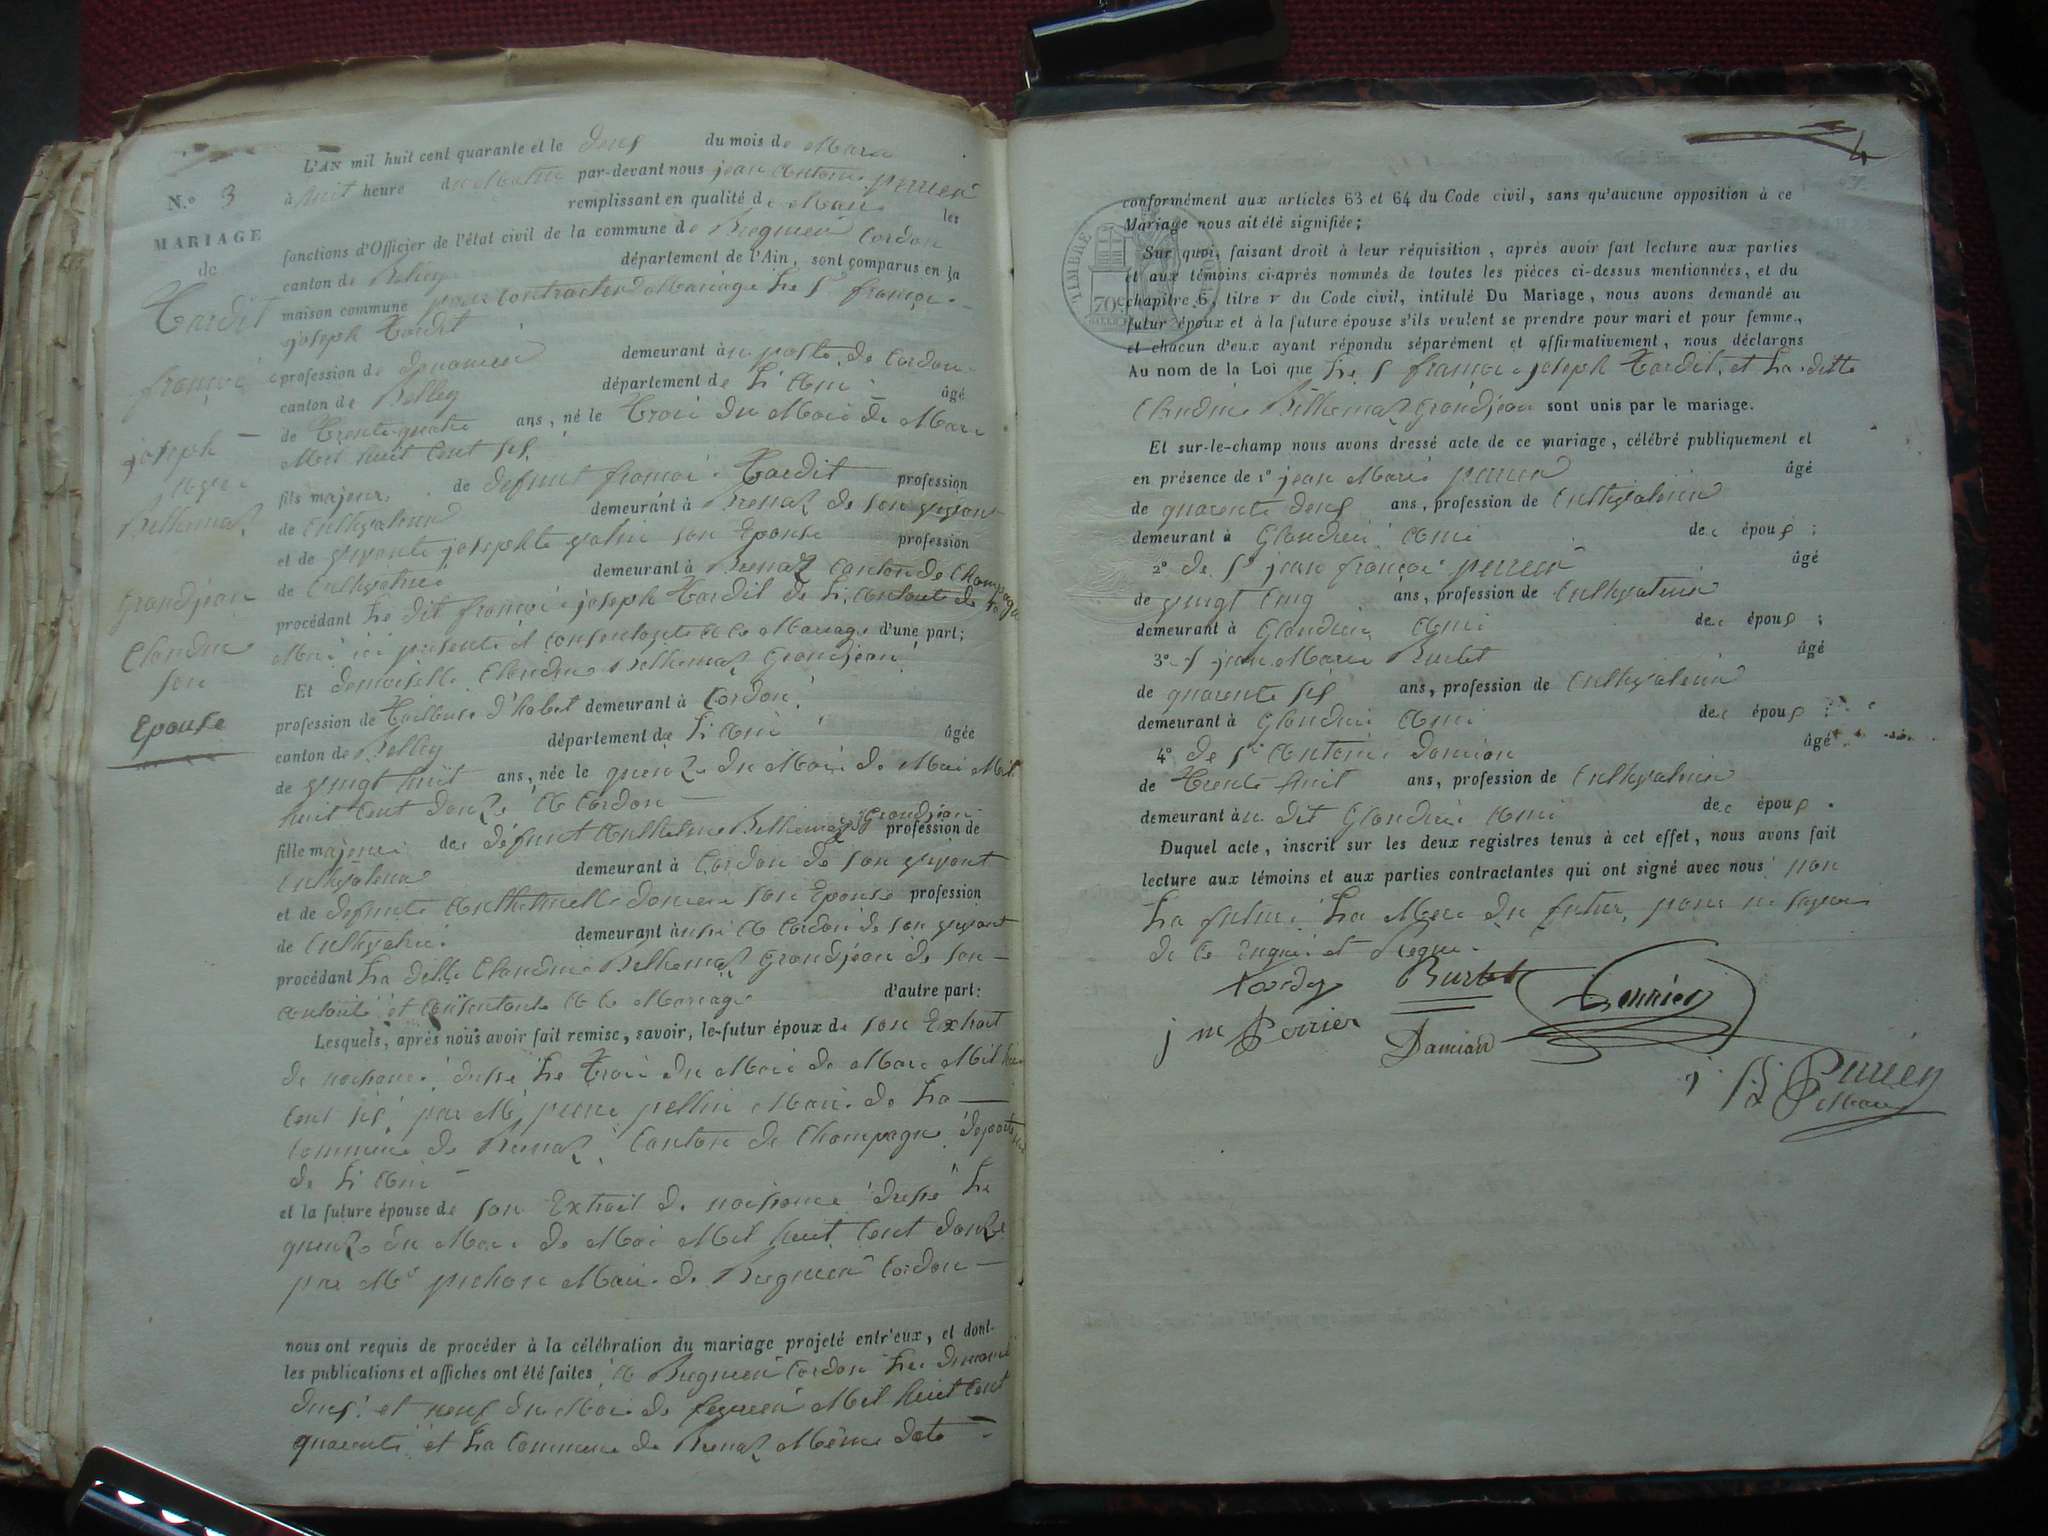 L'AN mil huit cent quarante et le deux du mois de Mars
N.o 3 à huit heure du Matin par-devant nous jean Antoine perrier
remplissant en qualité de Maire les
MARIAGE
fonctions d'Officier de l'état civil de la commune de Bregnier Cordon
de
canton de Belley département de l'Ain, sont comparus en la
Tardit
maison commune pour contracter Mariage Le Sr françoi
joseph Tardit
françoi
profession de douanier demeurant au poste de Cordon
canton de Belley département de L'Ain âgé
de Trente quatre ans, né le Troi du Moi de Mars
joseph
Mil huit Cent six
fils majeur de defunt françoi Tardit profession
Belhemaz
de Cultivateur demeurant à Brenaz de son vivant
et de vivante josephte son Epouse profession
de Cultivatrice demeurant à Brenaz Canton de Champagne
Grandjean
procédant Le dit françoi joseph Tardit de
Mere ici presente et consentante a Ce Mariage d'une part;
Claudine
Et demoiselle Claudine Belhemaz Grandjean
son
profession de Tailleuse d'habit demeurant à Cordon
Epouse
canton de Belley département de L'Ain âgée
de vingt huit ans, née le quenze du Moi de Mai Mil
huit Cent douze A Cordon
Grandjean
fille majeure de defunt Anthelme Belhemaz profession de
Cultivateur demeurant à Cordon de son vivant
et de defunte son Epouse profession
de Cultivatrice demeurant aussi A Cordon de son vivant
procédant La delle Claudine Belhemaz Grandjean de son
autorité et consentante A Ce Mariage d'autre part:
Lesquels, après nous avoir fait remise, savoir, le futur époux de son Extrait
de naissance dressé Le Troi du Moi de Mars Mil huit
Cent six par Mr pellin Maire de La
Commune de Brenaz Canton de Champagne
de L'Ain
et la future épouse de son Extrait de naissance dressé Le
quenze du Moi de Mai Mil huit Cent douze
par Mr Maire de Bregnier Cordon
nous ont requis de procéder à la célébration du mariage projeté entr'eux, et dont
les publications et affiches ont été faites A Bregnier Cordon Les dimanche
deux et neuf du Moi de fevrier Mil huit Cent
quarente et La Commune de Brenaz Même date
4
conformément aux articles 63 et 64 du Code civil, sans qu'aucune opposition à ce
Mariage nous ait été signifiée;
TIMBRE
70c
Sur quoi, faisant droit à leur réquisition, après avoir fait lecture aux parties
et aux témoins ci-après nommés de toutes les pièces ci-dessus mentionnées, et du
chapitre 6, titre v du Code civil, intitulé Du Mariage, nous avons demandé au
futur époux et à la future épouse s'ils veulent se prendre pour mari et pour femme,
et chacun d'eux ayant répondu séparément et affirmativement, nous déclarons
Au nom de la Loi que Le S françoi joseph Tardit et La ditte
Claudine Belhemaz Grandjean sont unis par le mariage.
Et sur-le-champ nous avons dressé acte de ce mariage, célébré publiquement et
en présence de 1o jean Marie perrier âgé
de quarente deux ans, profession de Cultivateur
demeurant à Glandieu Ami des époux;
2o de Sr jean françoi perrier âgé
de vingt Cinq ans, profession de Cultivateur
demeurant à Glandieu Ami des époux;
3o S jean Marie Burlet âgé
de quarente six ans, profession de Cultivateur
demeurant à Glandieu Ami des époux;
4o de Sr Antoine damian âgé
de Trente huit ans, profession de Cultivateur
demeurant au dit Glandieu Ami des époux.
Duquel acte, inscrit sur les deux registres tenus à cet effet, nous avons fait
lecture aux témoins et aux parties contractantes qui ont signé avec nous non
La future La Mere du futur, pour ne savoir
de Ce Enquis et Requis.
Tardy Burlet Perrier
j m Perrier Damian
Perrier
Maire